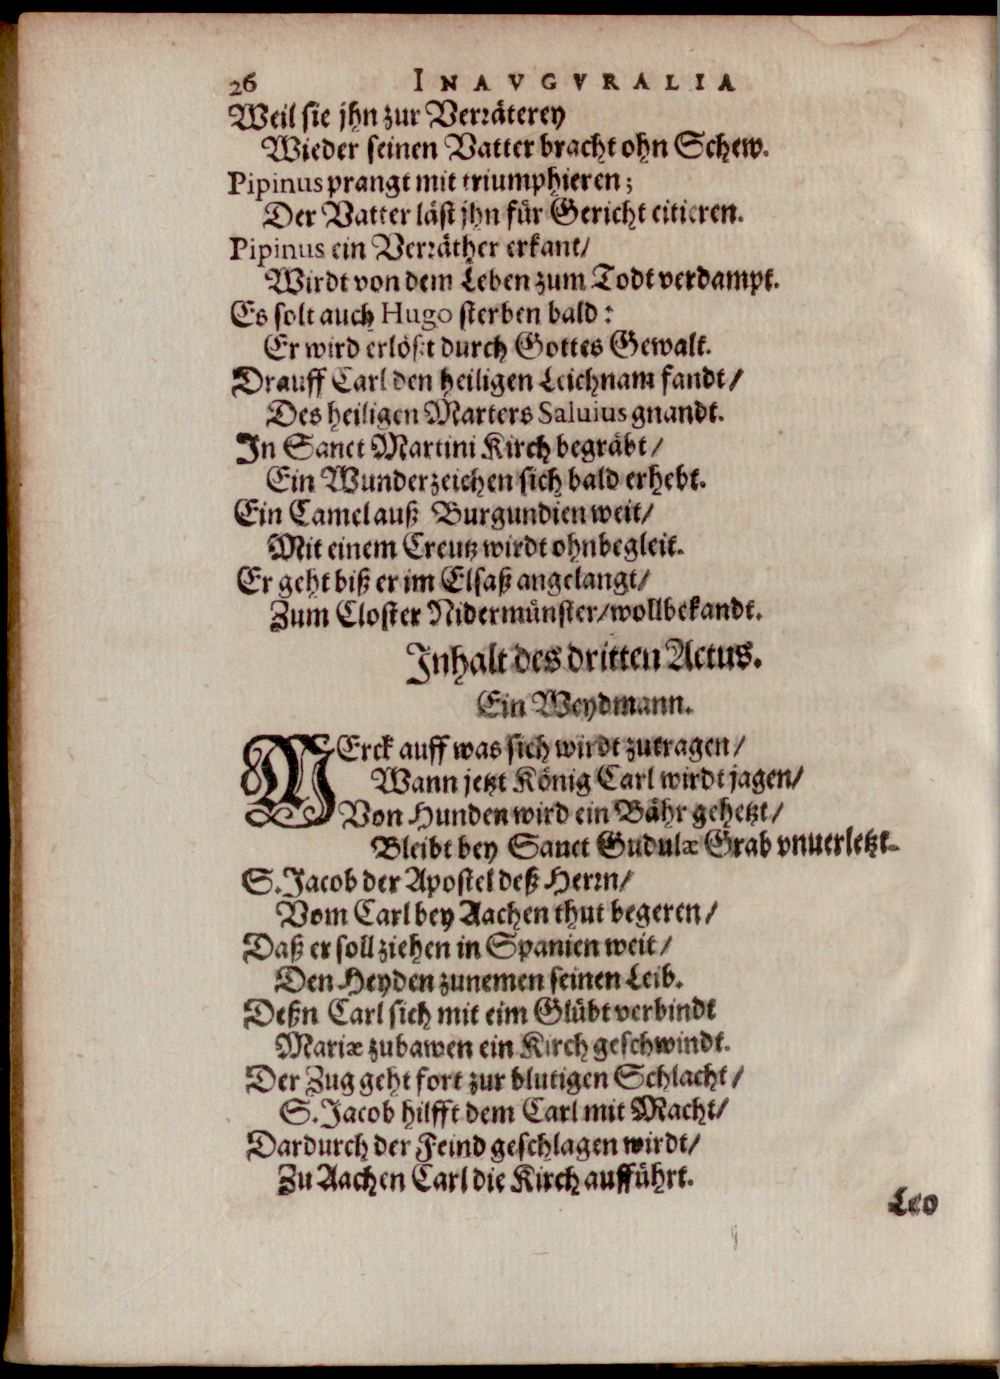 26 INAVGVRALIA
Weil sie jhn zur Verräterey
Wieder seinen Vatter bracht ohn Schew.
Pipinus prangt mit triumphieren;
Der Vatter läst jhn für Gericht citieren.
Pipinus ein Verräther erkant/
Wirdt von dem Leben zum Todt verdampt.
Es solt auch Hugo sterben bald:
Er wird erlöst durch Gottes Gewalt.
Drauff Carl den heiligen Leichnam fandt/
Des heiligen Marters Saluius gnandt.
In Sanct Martini Kirch begräbt/
Ein Wunderzeichen sich bald erhebt.
Ein Camel auß Burgundien weit/
Mit einem Creutz wirdt ohnbegleit.
Er geht biß er im Elsaß angelangt/
Zum Closter Nidermünster/wollbekandt.
Inhalt des dritten Actus.
Ein Weydmann.
MErck auff was sich wirdt zutragen/
Wann jetzt König Carl wirdt jagen/
Von Hunden wird ein Bähr gehetzt/
Bleibt bey Sanct Gudulæ Grab vnuerletzt.
S. Jacob der Apostel deß Herrn/
Vom Carl bey Aachen thut begeren/
Daß er soll ziehen in Spanien weit/
Den Heyden zunemen seinen Leib.
Deßn Carl sich mit eim Glübt verbindt
Mariæ zubawen ein Kirch geschwindt.
Der Zug geht fort zur blutigen Schlacht/
S. Jacob hilfft dem Carl mit Macht/
Dardurch der Feind geschlagen wirdt/
Zu Aachen Carl die Kirch aufführt.
Leo